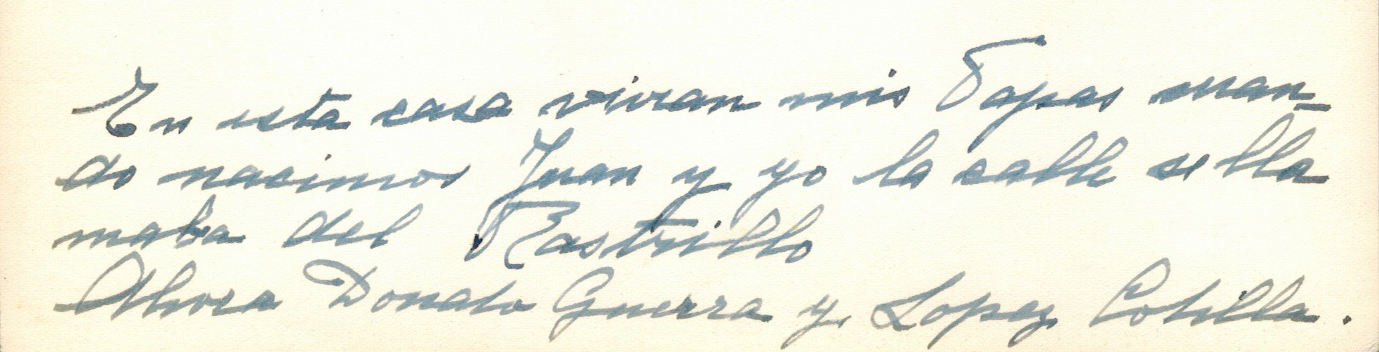 En esta casa vivian mis Papas cuan_
do nacimos Juan y yo la calle se lla
maba del Rastrillo
Ahora Donato Guerra y Lopez Cotilla.